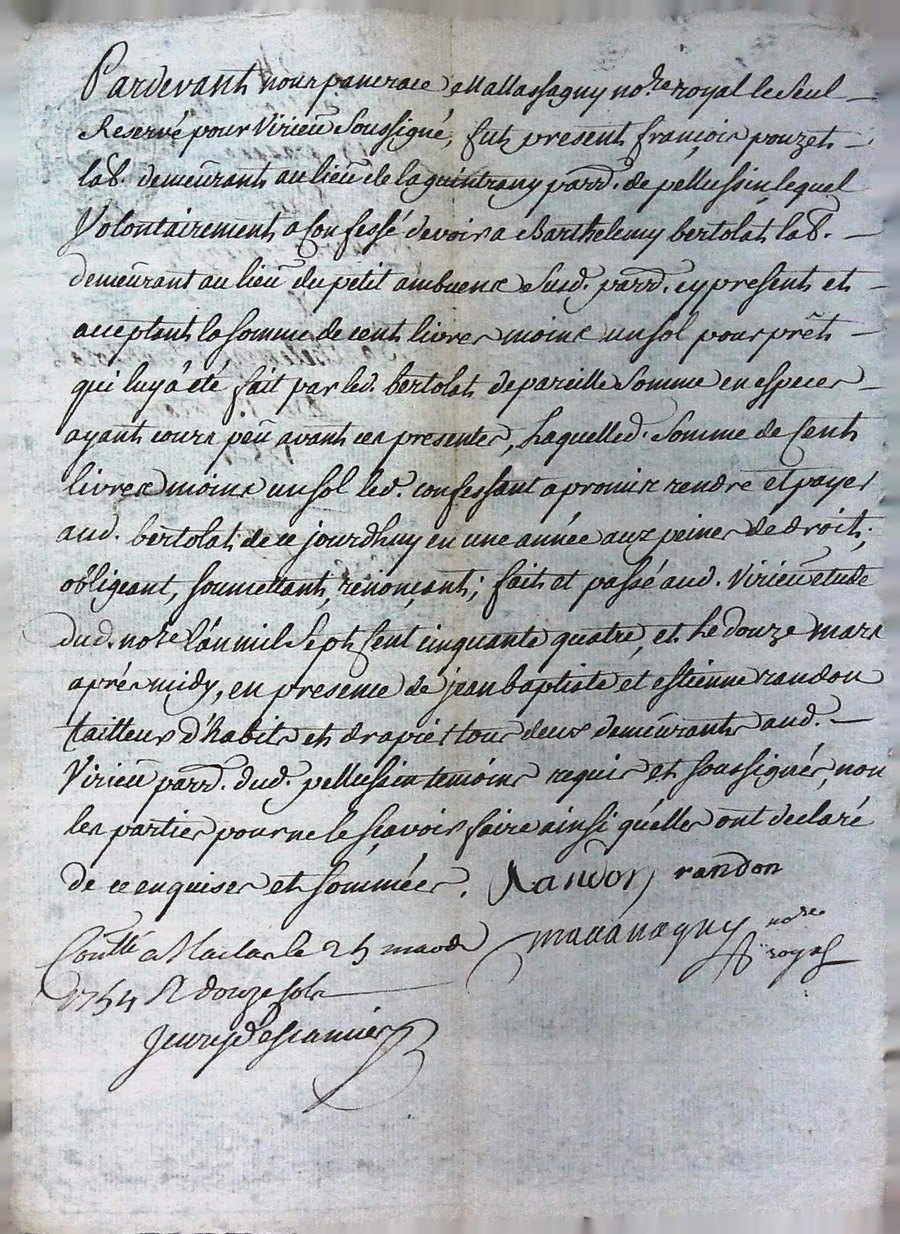 Pardevant nous pancrace Mallassagny no.re royal le seul
Reservé pour Virieü soussigné, fut present françois pouzet
lab. demeürant au lieü de la guintrany parr. de pellussin, lequel
Volontairement a confessé devoir a Barthelemy bertolat lab.
demeürant au lieü du petit ambuent susd. parr. cy present et
acceptant la somme de cent livres moins un sol pour prêt
qui luy a été fait par led. bertolat de pareille somme en especes
ayant cours peü avant ces presentes, Laquelled. somme de Cent
livres moins un sol led. confessant a promis rendre et payer
aud. bertolat de ce jourdhuy en une année aux peines de droit;
obligeant, soumettant, rénonçant; fait et passé aud. Virieü etude
dud. no.re l'an mil sept Cent cinquante quatre, et Le douze mars
aprés midy, en presence de jean baptiste et estienne randon
tailleur d'habits et drapier tous deux demeürants aud.
Virieü parr. dud. pellussin temoins requis et soussignés, non
les parties pour ne le sçavoir faire ainsi qu'elles ont declaré
de ce enquises et sommées. Randon randon
Conllé a Maclas le 25 mars mallassagny no.re
1754 R douze sols royal